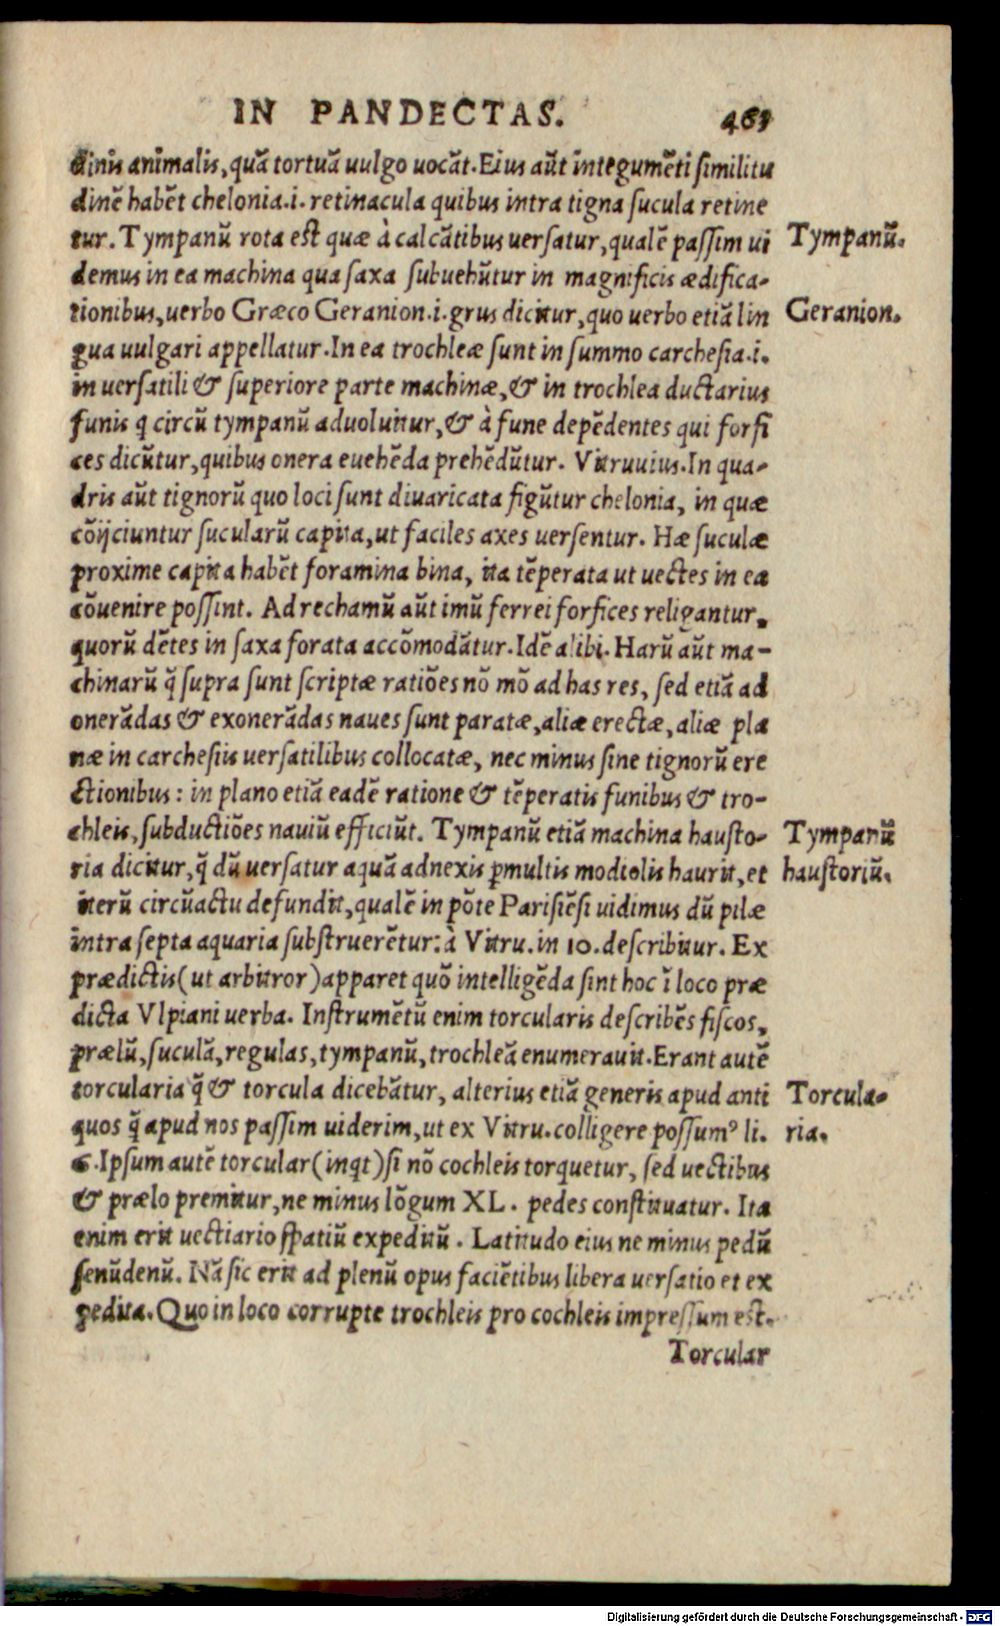 IN PANDECTAS. 465
dinis animalis, quã tortuã uulgo uocãt. Eius aũt integumẽti similitu
dinẽ habẽt chelonia .i. retinacula quibus intra tigna sucula retine
tur. Tympanũ rota est quæ à calcãtibus uersatur, qualẽ passim ui
Tympanũ.
demus in ea machina qua saxa subuehũtur in magnificis ædifica-
tionibus, uerbo Græco Geranion .i. grus dicitur, quo uerbo etiã lin
Geranion.
gua uulgari appellatur. In ea trochleæ sunt in summo carchesia .i.
in uersatili & superiore parte machinæ, & in trochlea ductarius
funis q circũ tympanũ aduoluitur, & à fune depẽdentes qui forfi
ces dicũtur, quibus onera euehẽda prehẽdũtur. Vitruuius. In qua-
dris aũt tignorũ quo loci sunt diuaricata figũtur chelonia, in quæ
cõijciuntur sucularũ capita, ut faciles axes uersentur. Hæ suculæ
proxime capita habẽt foramina bina, ita tẽperata ut uectes in ea
cõuenire possint. Ad rechamũ aũt imũ ferrei forfices religantur,
quorũ dẽtes in saxa forata accõmodãtur. Idẽ alibi. Harũ aũt ma-
chinarũ q̃ supra sunt scriptæ ratiões nõ mõ ad has res, sed etiã ad
onerãdas & exonerãdas naues sunt paratæ, aliæ erectæ, aliæ pla
næ in carchesiis uersatilibus collocatæ, nec minus sine tignorũ ere
ctionibus: in plano etiã eadẽ ratione & tẽperatis funibus & tro-
chleis, subductiões nauiũ efficiũt. Tympanũ etiã machina hausto-
Tympanũ
ria dicitur, q̃ dũ uersatur aquã adnexis ꝑmultis modiolis haurit, et
haustoriũ.
iterũ circũactu defundit, qualẽ in põte Parisiẽsi uidimus dũ pilæ
intra septa aquaria substruerẽtur: à Vitru. in 10. describitur. Ex
prædictis (ut arbitror) apparet quõ intelligẽda sint hoc ĩ loco præ
dicta Vlpiani uerba. Instrumẽtũ enim torcularis describẽs fiscos,
prælũ, suculã, regulas, tympanũ, trochleã enumerauit. Erant autẽ
torcularia q̃ & torcula dicebãtur, alterius etiã generis apud anti
Torcula-
quos q̃ apud nos passim uiderim, ut ex Vitru. colligere possumꝰ li.
ria.
6. Ipsum autẽ torcular (inqt) si nõ cochleis torquetur, sed uectibus
& prælo premitur, ne minus lõgum XL. pedes constituatur. Ita
enim erit uectiario spatiũ expeditũ. Latitudo eius ne minus pedũ
senũdenũ. Nã sic erit ad plenũ opus faciẽtibus libera uersatio et ex
pedita. Quo in loco corrupte trochleis pro cochleis impressum est.
Torcular
Digitalisierung gefördert durch die Deutsche Forschungsgemeinschaft - DFG